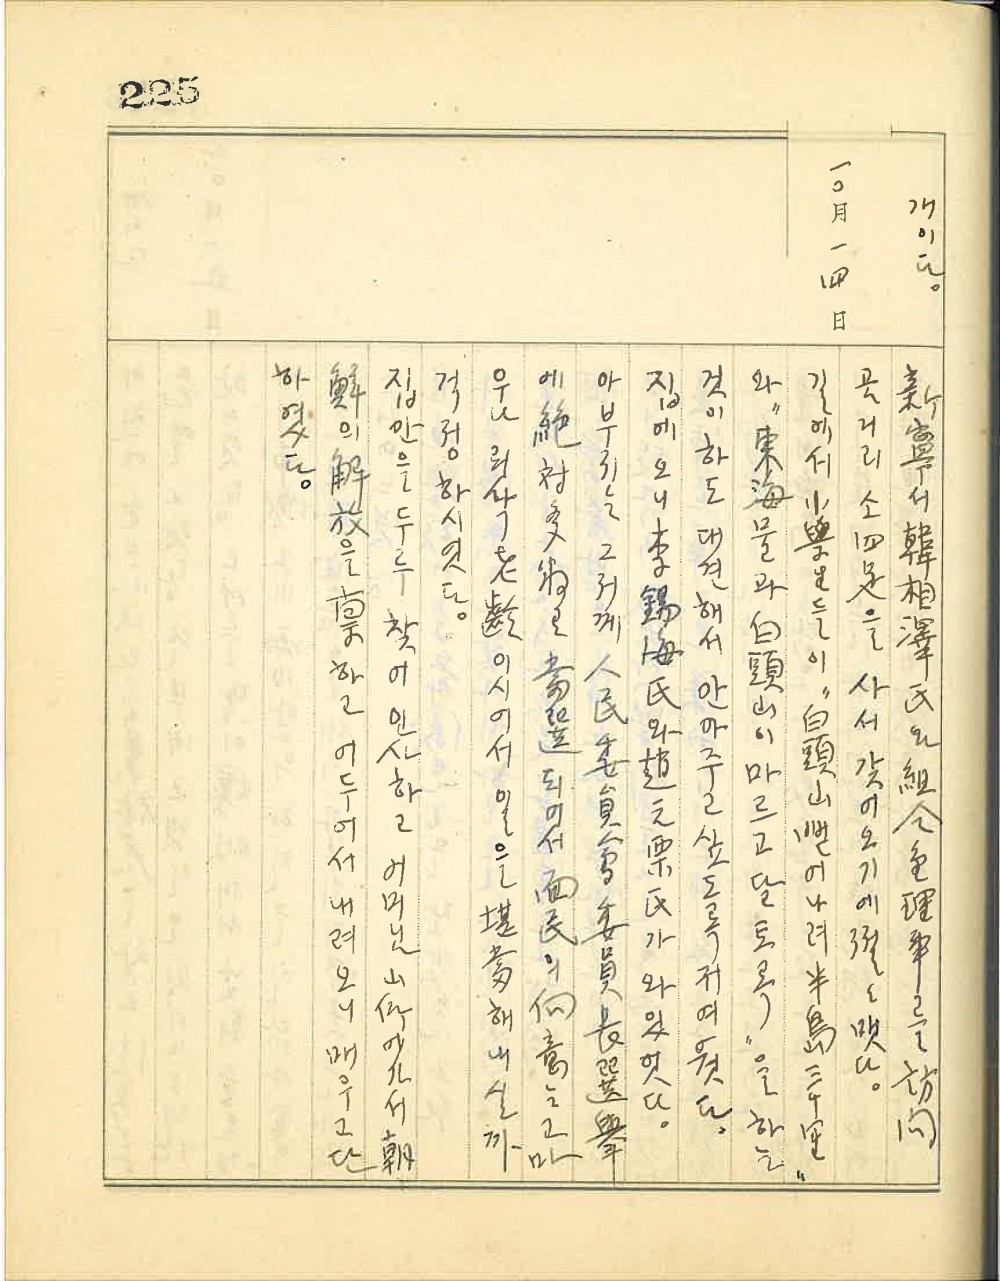 225
개이다。
一〇月 一四日
新寧서 韓相澤氏와 組合 金理事를 訪問
곤거리 소 四足을 사서 갖어오기에 땀
길에서 小學生들이 “白頭山 뻗어나려 半島 三千里”
와 “東海물과 白頭山이 마르고 달토록”을 하는
것이 하도 대견해서 안아주고 싶도록 귀여웠다。
집에 오니 李錫海氏와 趙元栗氏가 와 있엇다。
아부지는 그저께 人民委員會 委員長 選擧
에 絶対多數로 當選되여서 面民의 信意는 고마
우나 워낙 老齡이시여서 일을 堪當해 내실까
걱정하시엿다。
집안을 두루 찾어 인사하고 어머님 山所에 가서 朝
鮮의 解放을 稟하고 어두어서 내려오니 매우 고단
하였다。